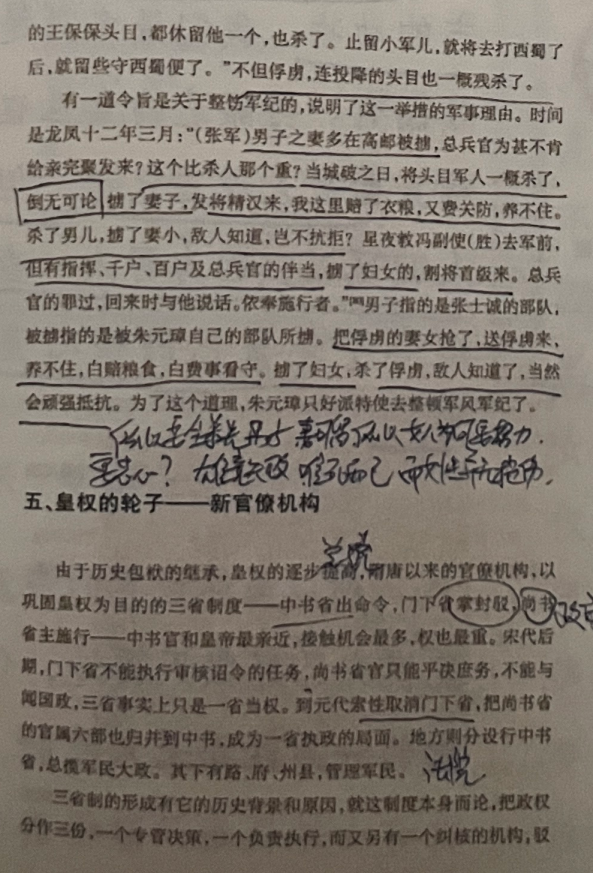 的王保保头目，都休留他一个，也杀了。止留小军儿，就将去打西蜀了
后，就留些守西蜀便了。”不但俘虏，连投降的头目也一概残杀了。
有一道令旨是关于整饬军纪的，说明了这一举措的军事理由。时间
是龙凤十二年三月：“（张军）男子之妻多在高邮被掳，总兵官为甚不肯
给亲完聚发来？这个比杀人那个重？当城破之日，将头目军人一概杀了，
倒无可论。掳了妻子，发将精汉来，我这里赔了衣粮，又费关防，养不住。
杀了男儿，掳了妻小，敌人知道，岂不抗拒？星夜教冯副使（胜）去军前，
但有指挥、千户、百户及总兵官的伴当，掳了妇女的，割将首级来。总兵
官的罪过，回来时与他说话。依奉施行者。”男子指的是张士诚的部队，
被掳指的是被朱元璋自己的部队所掳。把俘虏的妻女抢了，送俘虏来，
养不住，白赔粮食，白费事看守。掳了妇女，杀了俘虏，敌人知道了，当然
会顽强抵抗。为了这个道理，朱元璋只好派特使去整顿军风军纪了。
五、皇权的轮子——新官僚机构
由于历史包袱的继承，皇权的逐步提高，隋唐以来的官僚机构，以
巩固皇权为目的的三省制度——中书省出命令，门下省掌封驳，尚书
省主施行——中书官和皇帝最亲近，接触机会最多，权也最重。宋代后
期，门下省不能执行审核诏令的任务，尚书省官只能平决庶务，不能与
闻国政，三省事实上只是一省当权。到元代索性取消门下省，把尚书省
的官属六部也归并到中书，成为一省执政的局面。地方则分设行中书
省，总揽军民大政。其下有路、府、州县，管理军民。
三省制的形成有它的历史背景和原因，就这制度本身而论，把政权
分作三份，一个专管决策，一个负责执行，而又另有一个纠核的机构，驳